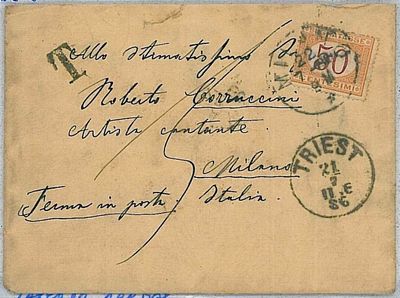 T
Allo stimatissimo Sr.
Roberto Corruccini
Artista cantante
Milano
Ferma in posta Italia
50
TRIEST
21
2
11.E
86